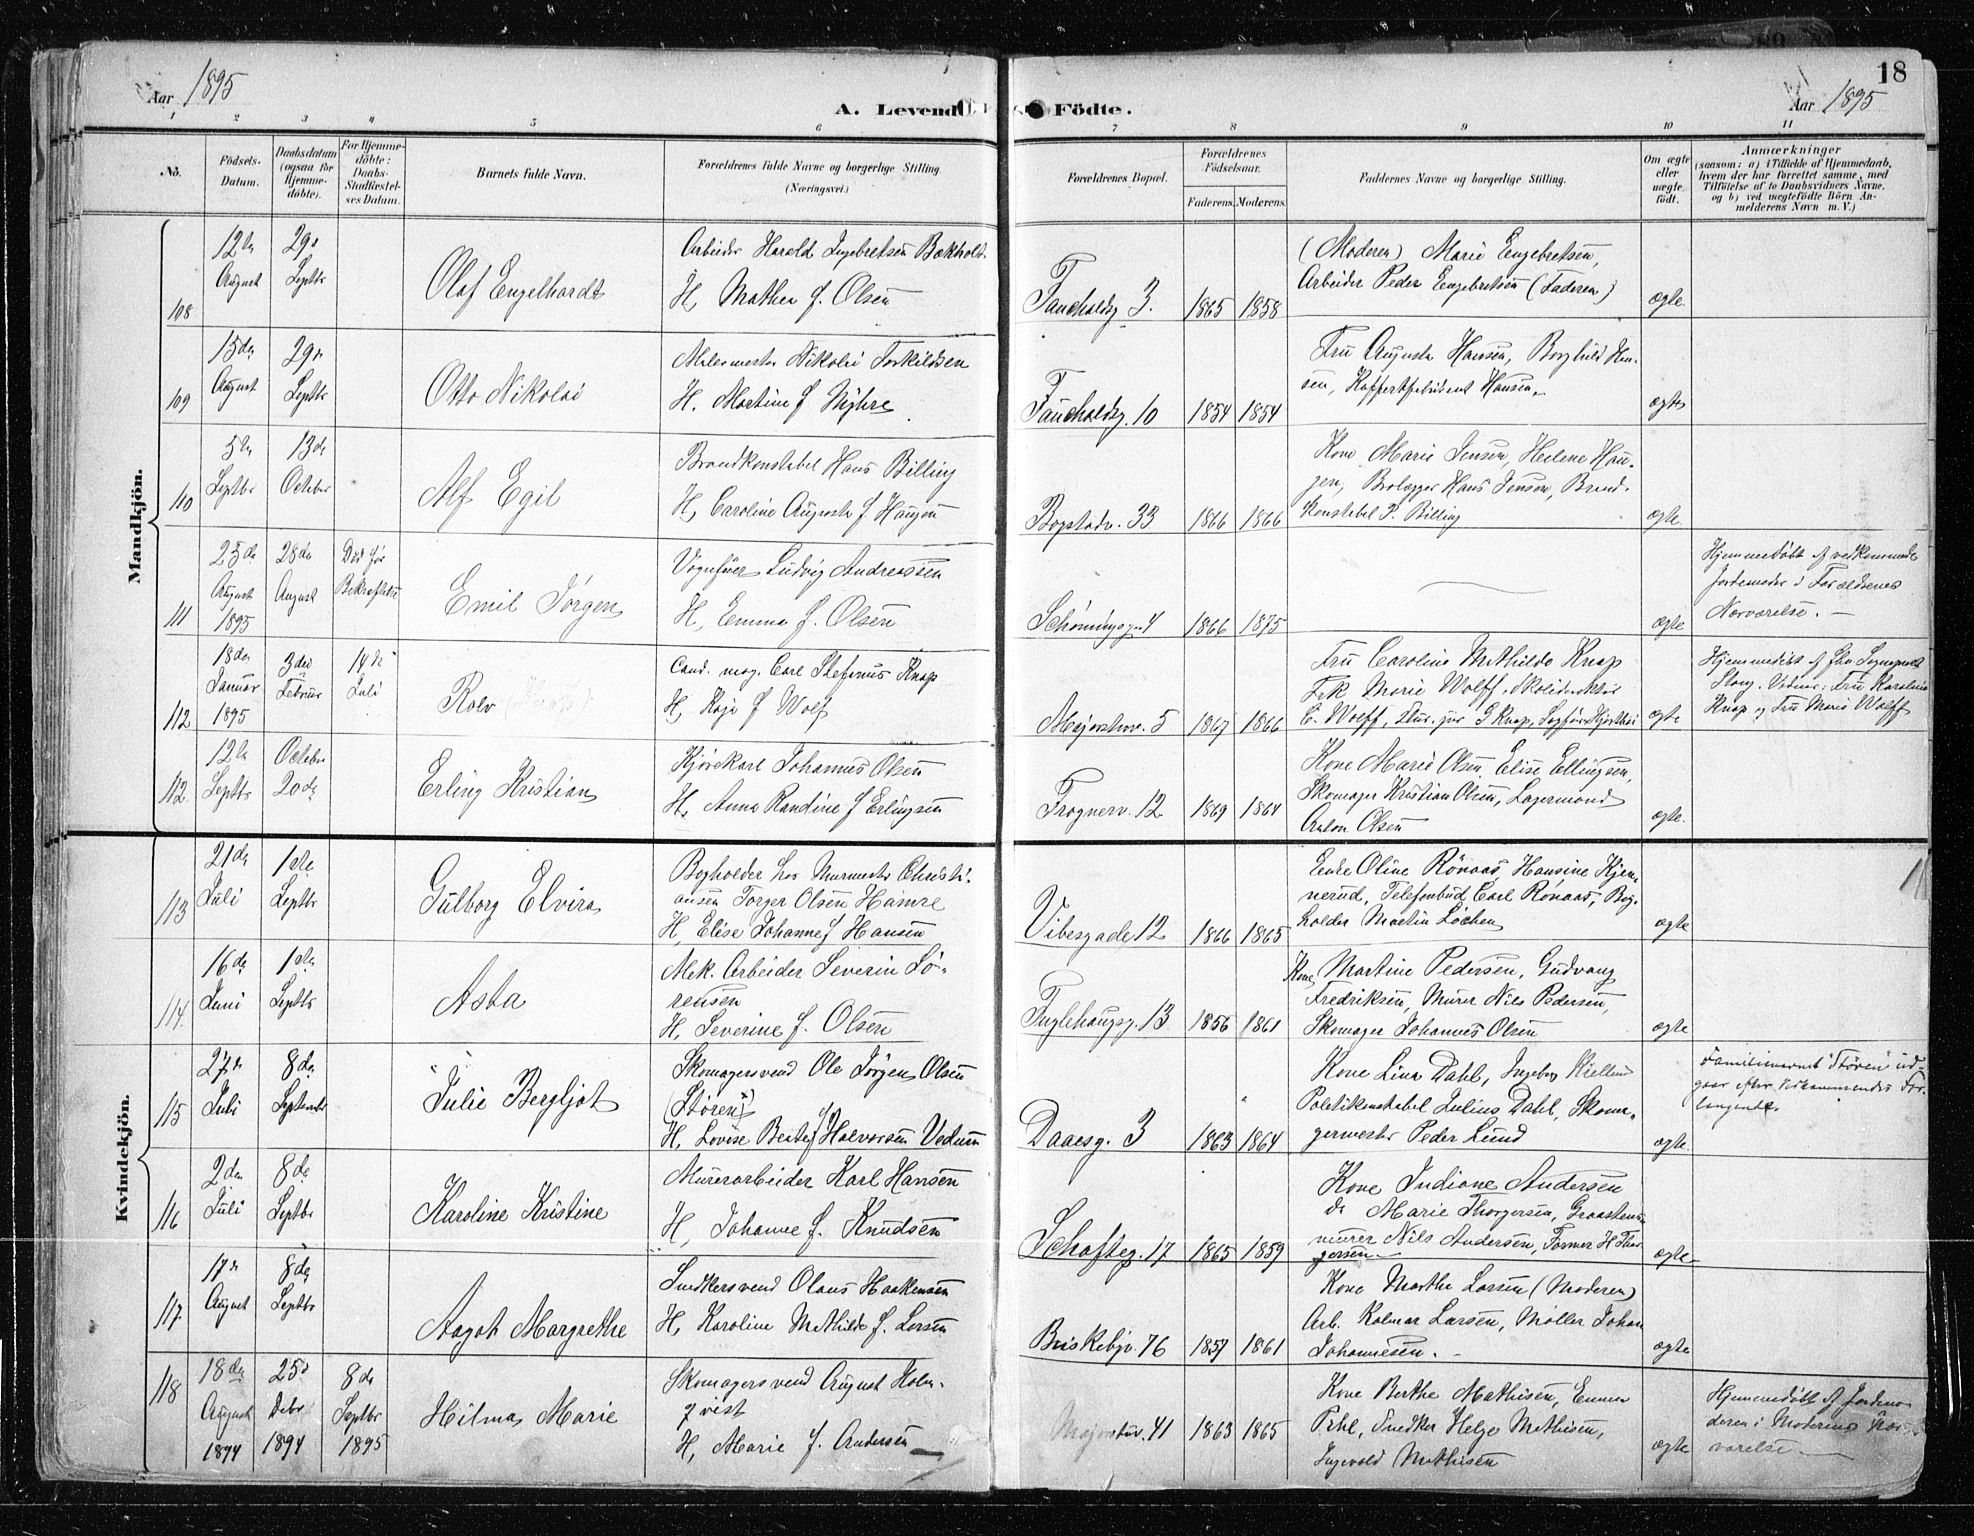 18
Aar 1895
A. Levende Födte.
Aar 1895
1 2 3 4 5 6 7 8 9 10 11
No.
Födsels-Datum.
Daabsdatum (ogsaa for Hjemmedöbte).
For Hjemmedöbte: Daabs-Stadfæstelses Datum.
Barnets fulde Navn.
Forældrenes fulde Navne og borgerlige Stilling (Næringsvei.)
Forældrenes Bopæl.
Forældrenes Födselsaar.
Faderens. Moderens.
Faddernes Navne og borgerlige Stilling.
Om ægte eller uægte födt.
Anmærkninger
(saasom: a) i Tilfælde af Hjemmedaab, hvem der har forrettet samme, med Tilföielse af to Daabsvidners Navne, og b) ved uægtefödte Börn Anmelderens Navn m. V.)
Mandkjön.
108 12te August 29de Septbr Olaf Engelhardt
Arbeider Harald Ingebretsen Bækholt.
H. Mathea f. Olsen
Fauchaldsg 3. 1865 1858
(Moderen) Marie Engebretsen,
Arbeider Peder Engebretsen (Faderen)
ægte.
109 15de August 29de Septbr Otto Nikolai
Malermester Nikolai Torkildsen
H. Martine f Myhre
Fauchaldsg. 10 1854 1854
Fru Augusta Hansen, Borghild Hansen,
Hansen.
ægte
110 5te Septbr 13de October Alf Egil
Brandkonstabel Hans Billing
H, Caroline Augusta f Haugen
Bogstadv. 33 1866 1866
Kone Marie Jensen, Helene Haugen,
Brolægger Hans Jensen, Brand-
konstabel P. Billing
ægte.
111 25de August 1895 28de August Död för Bekræftelsen Emil Jörgen
Vognfører Ludvig Andreassen
H, Emma f. Olsen
Schøningsg. 4 1866 1875
ægte
Hjemmedöbt af vedkommende
Jordemoder i Forældrenes
Nærværelse. —
112 18de Januar 1895 3die Februar 14de Juli Rolv (Knap)
Cand. mag. Carl Stefanus Knap
H, Kaja f Wolf
Majorstuv. 5 1867 1866
Fru Caroline Mathilde Knap
Frk Marie Wolff,
C. Wolff, Stud. jur G Knap,
ægte
Hjemmedöbt af
Vidner: Fru Karoline
Knap og Fru Marie Wolff
112. 12te Septbr October 20de Erling Kristian
Kjörekarl Johannes Olsen
H, Anna Randine f Erlingsen
Frognerv. 12 1869 1864
Kone Marie Olsen, Elise Ellingsen,
Skomager Kristian Olsen, Lagermand
Anton Olsen
ægte.
Kvindekjön.
113 21de Juli 1ste Septbr Gulborg Elvira
Bogholder hos Murmester Christi-
ansen Torger Olsen Hamre
H, Elise Johanne f Hansen
Vibesgade 12 1866 1865
Enke Oline Rønaas, Hansine Kjen-
nerud, Telefonbud Carl Rønaas, Bog-
holder Martin Lochen
ægte
114. 16de Juni 1ste Septbr Asta
Mek. Arbeider Severin Sö-
rensen
H, Severine f. Olsen
Fuglehaugsg. 13 1856 1861
Kone Martine Pedersen, Gudvang
Fredriksen, Murer Nils Pedersen,
Skomager Johannes Olsen
ægte
115 27de Juli 8de September Julie Bergljot
Skomagersvend Ole Jörgen Olsen
(Stören)
H, Lovise Beate f Halvorsen Vedum
Daaesg. 3 1863 1864
Kone Lina Dahl, Ingeborg Kielland
Politikonstabel Julius Dahl, Skoma-
germester Peder Lund
ægte.
Familienavnet "Stören" ud-
gaar efter Vedkommendes For-
langende.
116 2den Juli 8de Septbr Karoline Kristine
Murerarbeider Karl Hansen
H, Johanne f. Knudsen
Schafteg. 17 1865 1859
Kone Indiane Andersen
do Marie Thorgersen, Graasteins-
murer Nils Andersen, Former H Thor-
gersen
ægte
117. 17de August 8de Septbr Aagot Margrethe
Snedkersvend Olaus Haakensen
H, Karoline Mathilde f. Larsen
Briskebyv. 76 1857 1861
Kone Marthe Larsen (Moderen)
Arb. Kolmar Larsen, Møller Johan
Johannesen. —
ægte
118 18de August 1894 25de Debr 1894 8de Septbr 1895 Hilma Marie
Skomagersvend August Holm-
qvist
H, Marie f. Andersen
Majorstuv. 41 1863 1865
Kone Berthe Mathisen, Emma
Pihl, Snedker Helge Mathisen,
Ingvald Mathisen
ægte
Hjemmedöbt af Jordemo-
deren i Moderens Nær-
værelse —